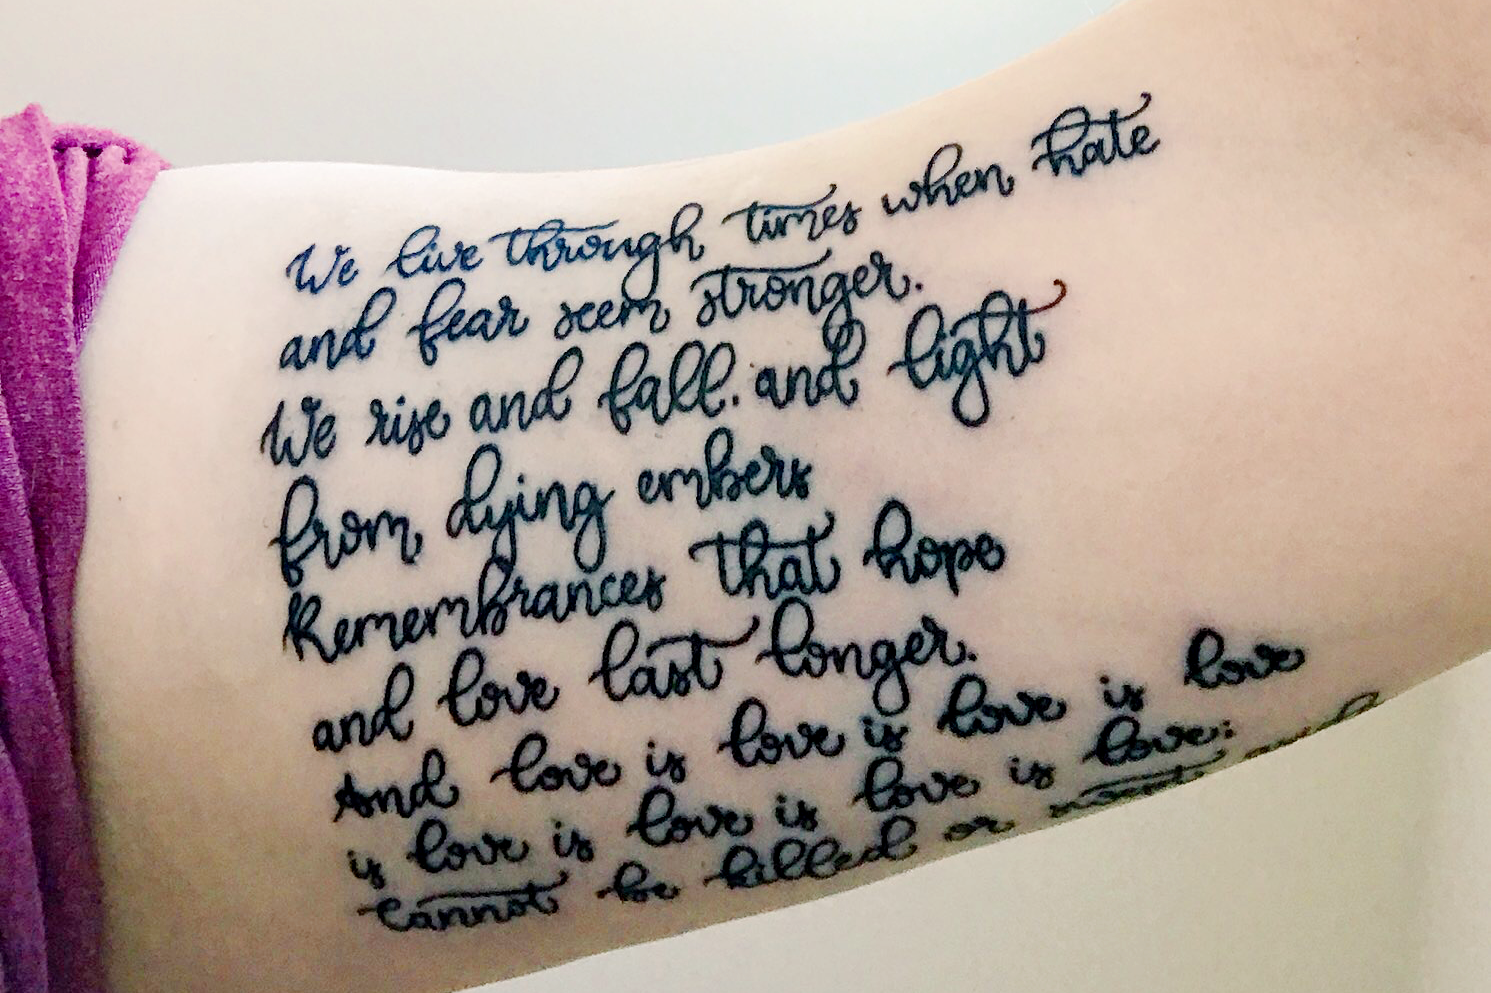 We live through times when hate
and fear seem stronger.
We rise and fall. and light
from dying embers
Remembrances that hope
and love last longer.
And love is love is love is love
is love is love is love is love:
cannot be killed or swept